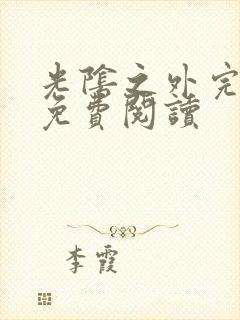 光陰之外完
免費閱讀
李霞